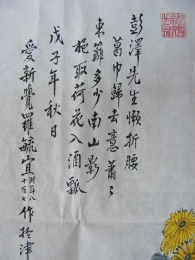 彭澤先生懶折腰
葛巾歸去意蕭々
東籬多少南山影
挹取荷花入酒瓢
戊子年秋日
愛新覺羅毓宜時年八十有七作於津